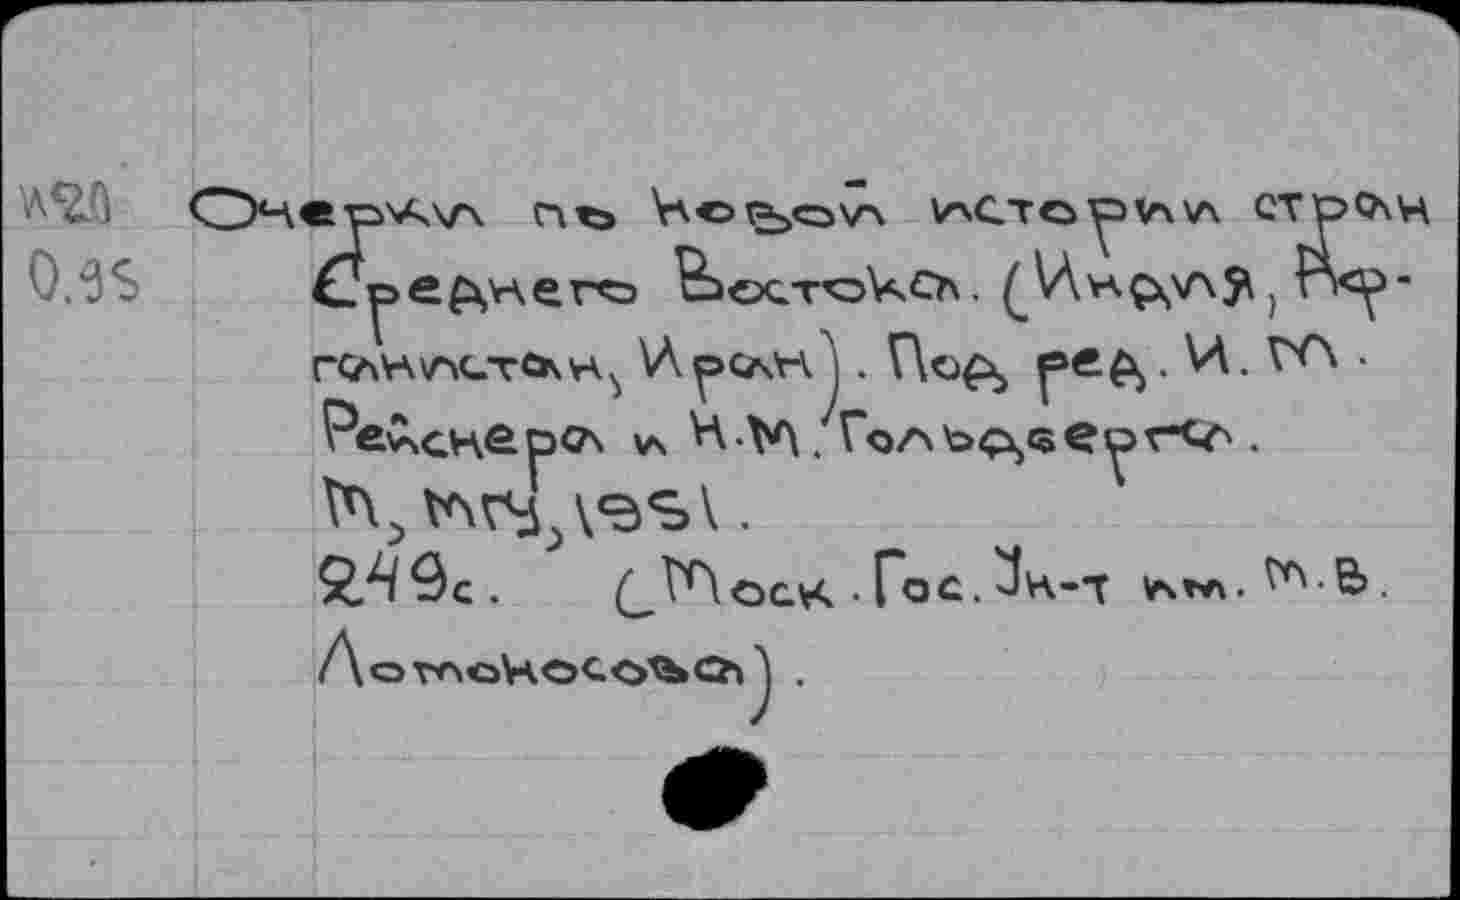 Очерки по новой истории стран
0.95 Среднего Востока. (Индия, Аф-
ганистан, Иран). Под ред. И. М.
Рейснера и Н.М. Гольдберга.
М, МГУ, 1951.
249с. (Моск. Гос. Ун-т им. М.В.
Ломоносова).